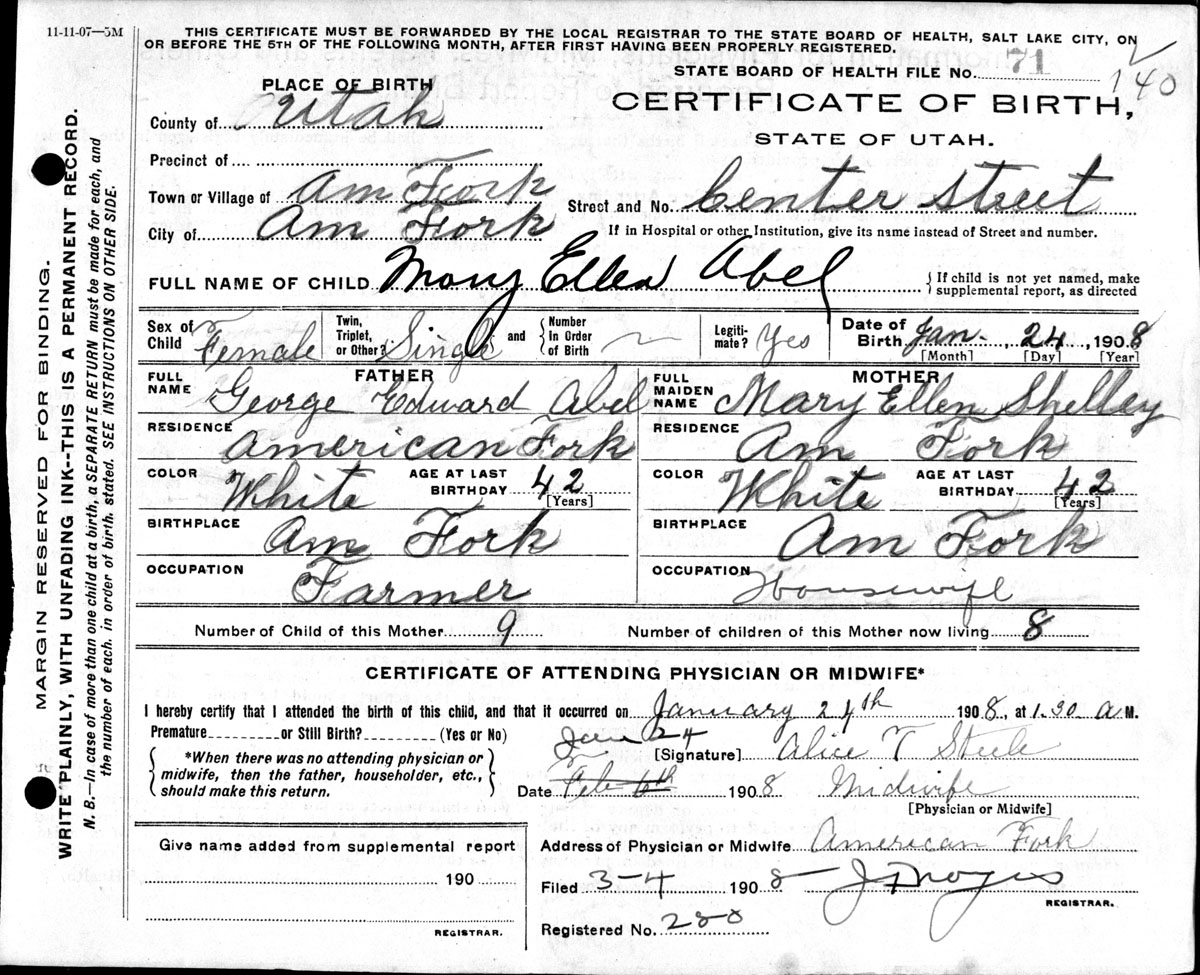 11-11-07—5M
THIS CERTIFICATE MUST BE FORWARDED BY THE LOCAL REGISTRAR TO THE STATE BOARD OF HEALTH, SALT LAKE CITY, ON
OR BEFORE THE 5TH OF THE FOLLOWING MONTH, AFTER FIRST HAVING BEEN PROPERLY REGISTERED.
STATE BOARD OF HEALTH FILE NO. 71
140
PLACE OF BIRTH
CERTIFICATE OF BIRTH,
STATE OF UTAH.
County of Utah
Precinct of
Town or Village of Am Fork
Street and No. Center Street
City of Am Fork
If in Hospital or other Institution, give its name instead of Street and number.
FULL NAME OF CHILD Mary Ellen Abel
{If child is not yet named, make
supplemental report, as directed
Sex of Child Female
Twin, Triplet, or Other? Single and {Number In Order of Birth
Legiti-mate? Yes
Date of Birth Jan- 24, 1908
[Month] [Day] [Year]
FATHER
FULL NAME George Edward Abel
RESIDENCE American Fork
COLOR White AGE AT LAST BIRTHDAY 42
[Years]
BIRTHPLACE Am Fork
OCCUPATION Farmer
MOTHER
FULL MAIDEN NAME Mary Ellen Shelley
RESIDENCE Am Fork
COLOR White AGE AT LAST BIRTHDAY 42
[Years]
BIRTHPLACE Am Fork
OCCUPATION Housewife
Number of Child of this Mother 9 Number of children of this Mother now living 8
CERTIFICATE OF ATTENDING PHYSICIAN OR MIDWIFE*
I hereby certify that I attended the birth of this child, and that it occurred on January 24th 1908, at 1.30 a M.
Premature or Still Birth? (Yes or No)
{*When there was no attending physician or
midwife, then the father, householder, etc.,
should make this return.}
Jan 24
[Signature] Alice T Steele
Date Feb 6th 1908 Midwife
[Physician or Midwife]
Give name added from supplemental report
190
REGISTRAR.
Address of Physician or Midwife American Fork
Filed 3-4 1908
REGISTRAR.
Registered No. 280
MARGIN RESERVED FOR BINDING.
WRITE PLAINLY, WITH UNFADING INK--THIS IS A PERMANENT RECORD.
N. B.—In case of more than one child at a birth, a SEPARATE RETURN must be made for each, and
the number of each, in order of birth, stated. SEE INSTRUCTIONS ON OTHER SIDE.